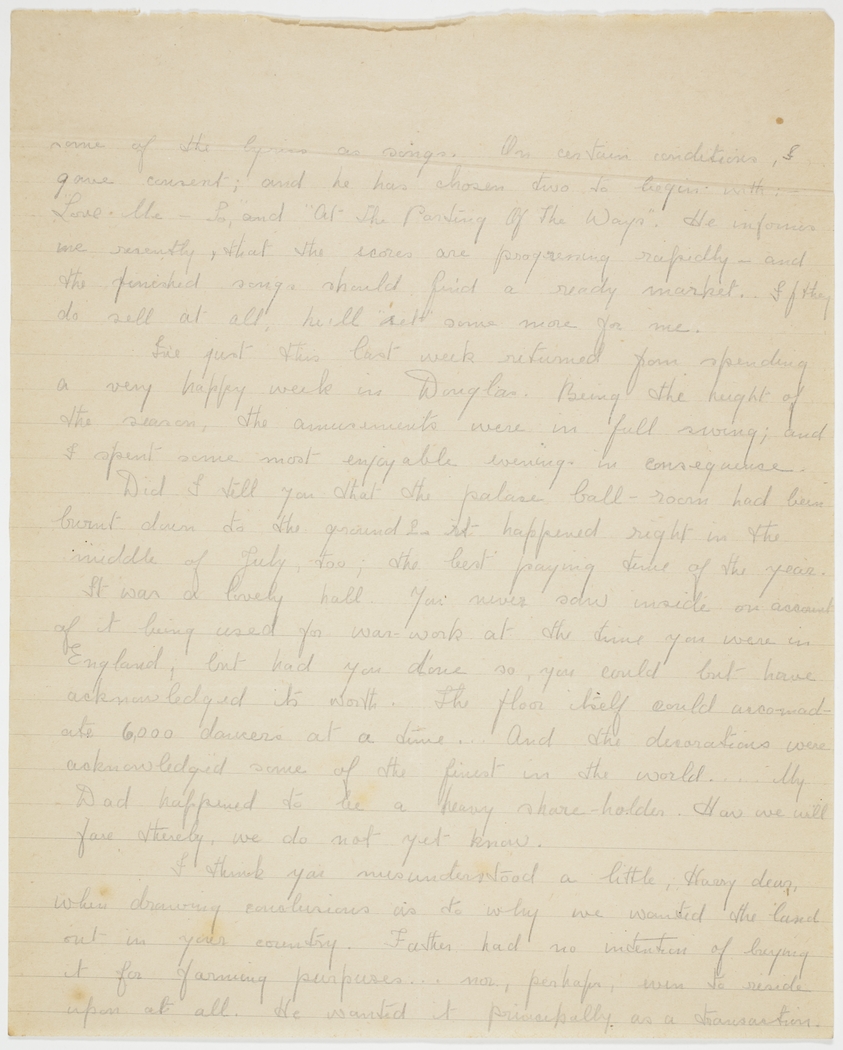 some of the lyrics as songs. On certain conditions, I
gave consent; and he has chosen two to begin with: -
"Love - Me - So," and "At The Parting Of The Ways". He informs
me recently, that the scores are progressing rapidly - and
the finished songs should find a ready market... If they
do sell at all, he'll "set" some more for me.
I've just this last week returned from spending
a very happy week in Douglas. Being the height of
the season, the amusements were in full swing; and
I spent some most enjoyable evenings in consequence.
Did I tell you that the palace ball-room had been
burnt down to the ground? - it happened right in the
middle of July, too; the best paying time of the year.
It was a lovely hall. You never saw inside on account
of it being used for war-work at the time you were in
England, but had you done so, you could but have
acknowledged its worth. The floor itself could accomad-
ate 6,000 dancers at a time... And the decorations were
acknowledged some of the finest in the world.... My
Dad happened to be a heavy share-holder. How we will
fare thereby, we do not yet know.
I think you misunderstood a little, Harry dear,
when drawing conclusions as to why we wanted the land
out in your country. Father had no intention of buying
it for farming purposes... nor, perhaps, even to reside
upon at all. He wanted it principally as a transaction.